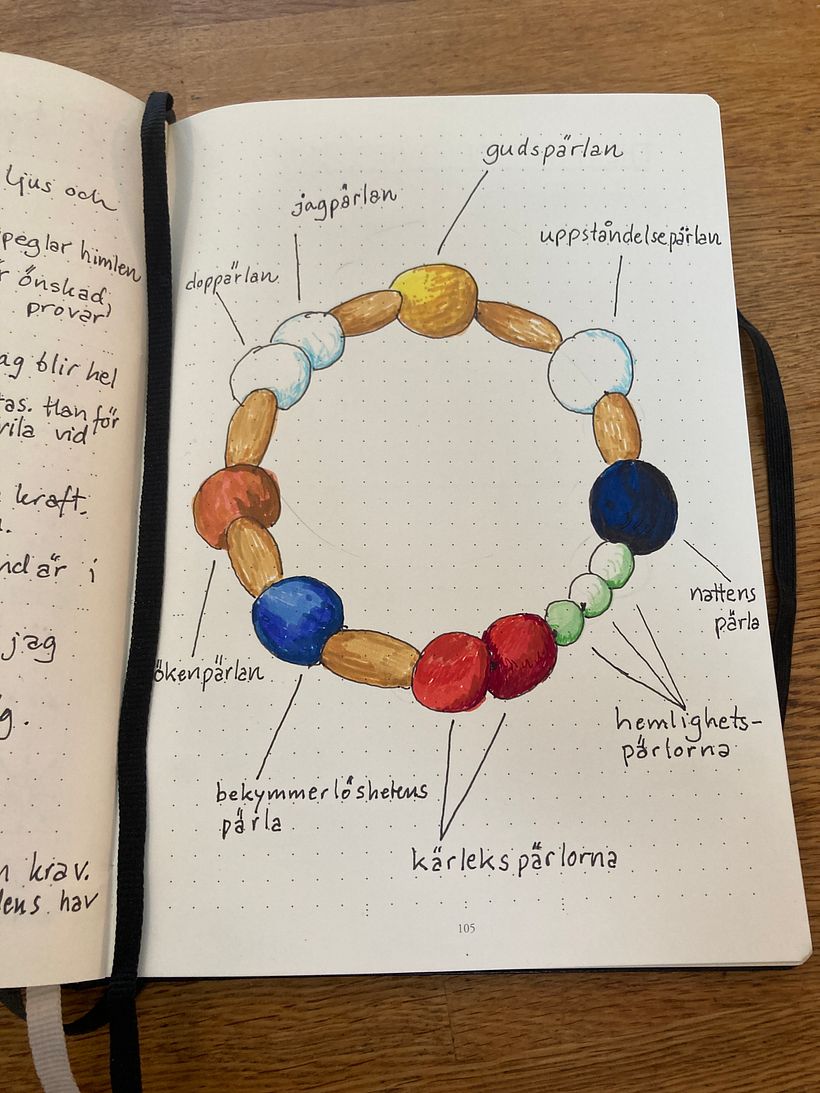 ljus och
peglar himlen
r önskad,
prövar
ag blir hel
tas. Han för
vila vid
kraft.
nd är i
jag
g.
n krav.
dens hav
gudspärlan
jagpärlan
uppståndelsepärlan
doppärlan
nattens
pärla
ökenpärlan
hemlighets-
pärlorna
bekymmerlöshetens
pärla
kärlekspärlorna
105